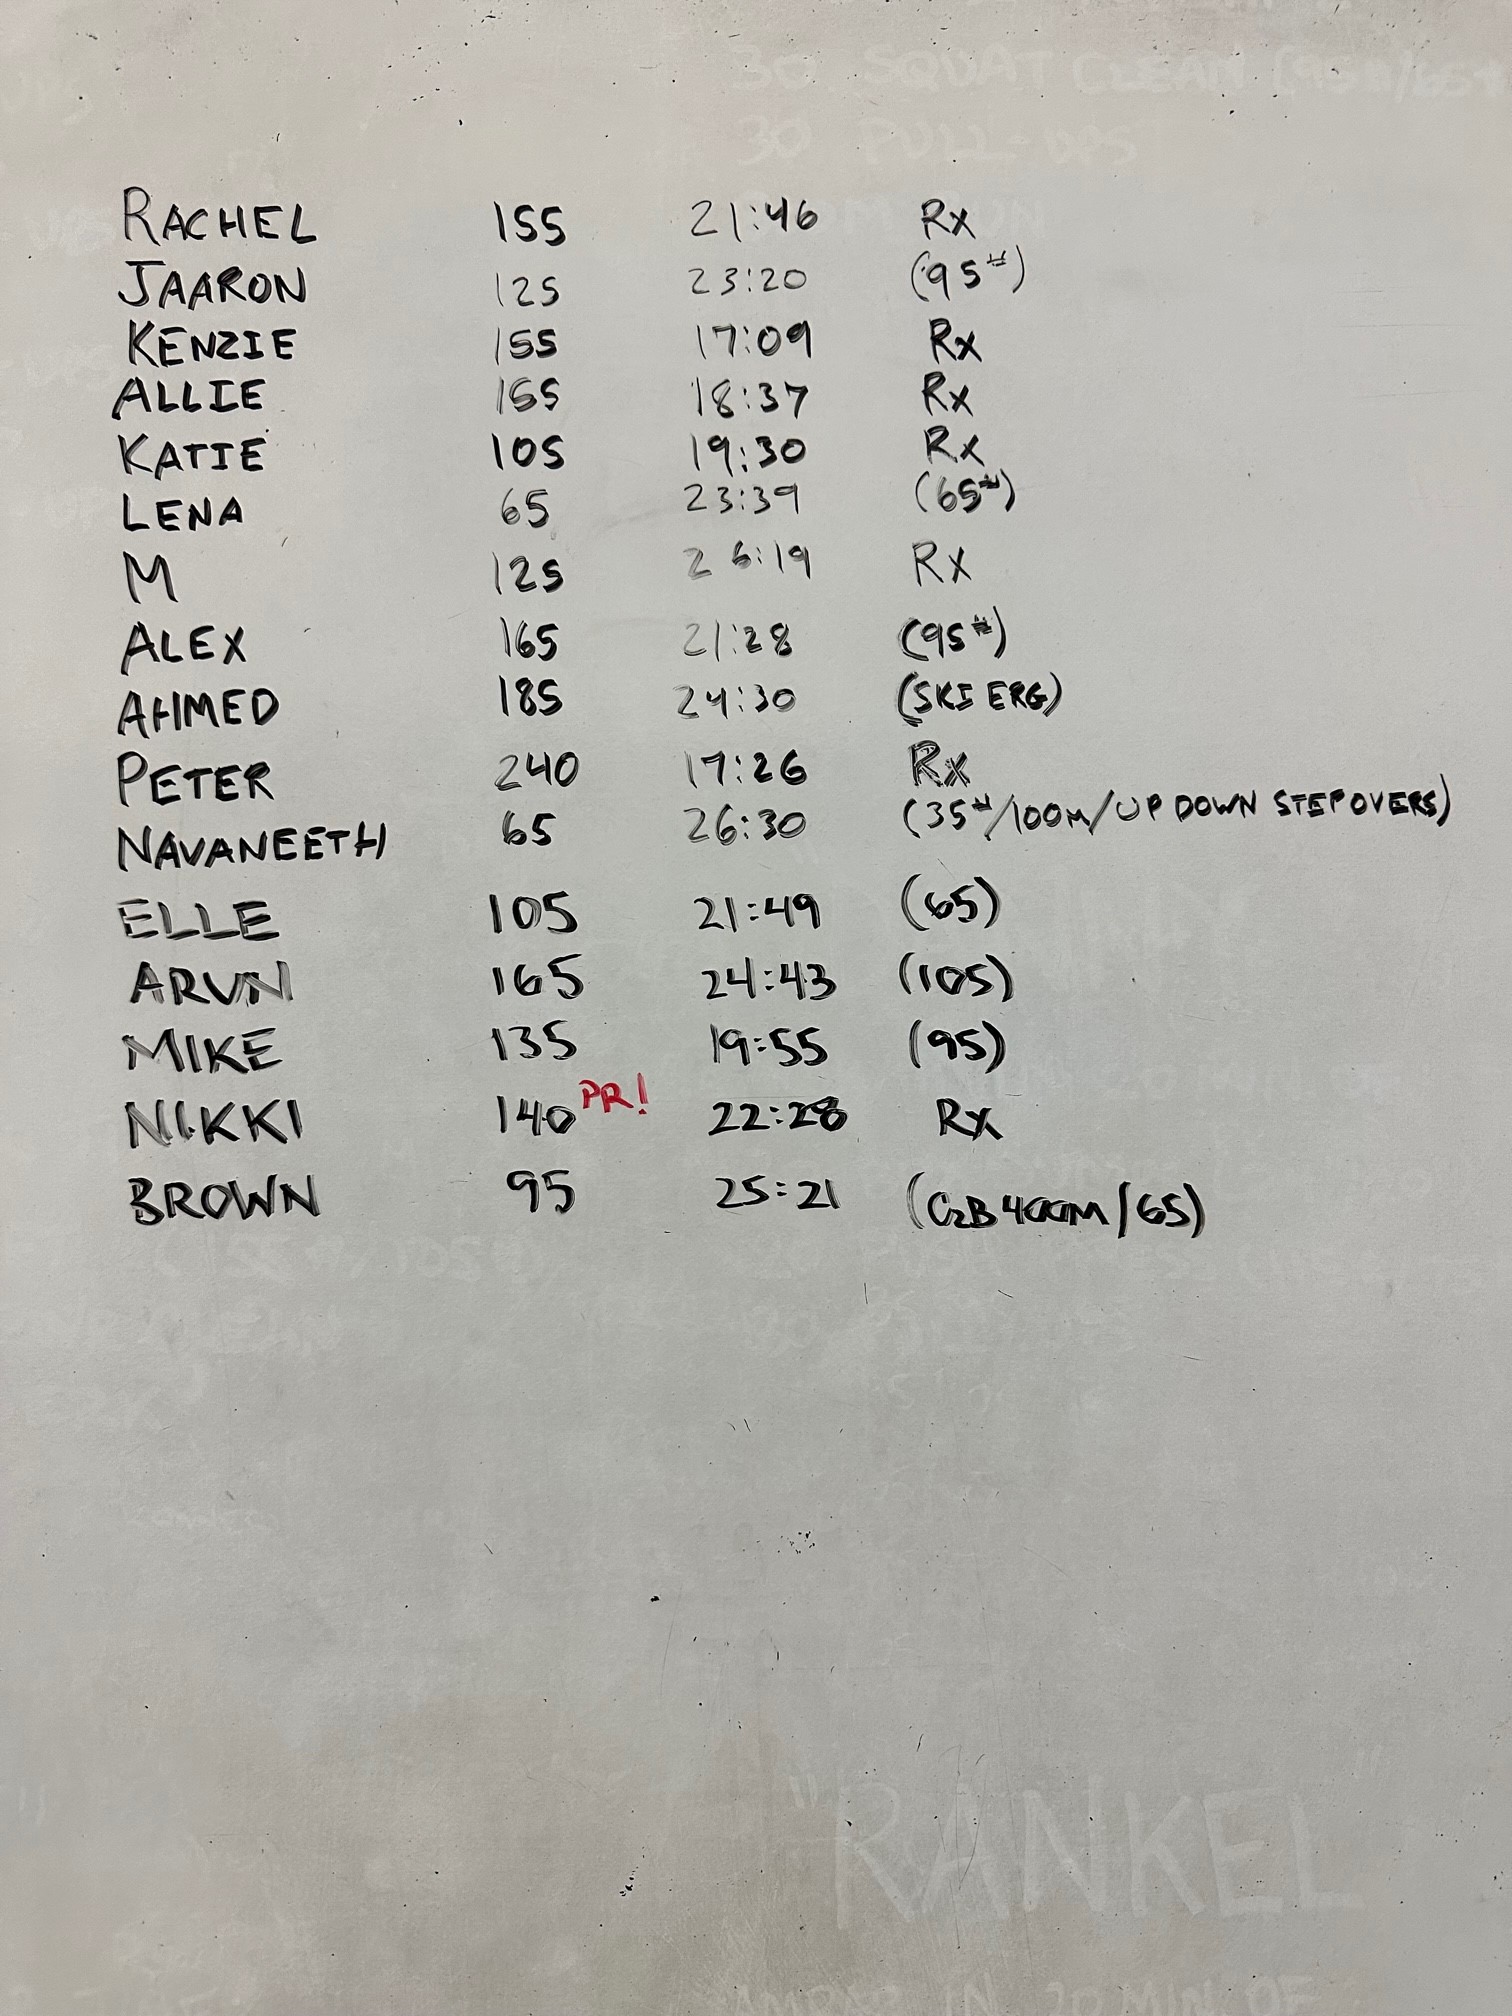 30 SQUAT CLEAN
30 PULL-UPS
RACHEL 155 21:46 Rx
JAARON 125 23:20 (95#)
KENZIE 155 17:09 Rx
ALLIE 155 18:37 Rx
KATIE 105 19:30 Rx
LENA 65 23:39 (65#)
M 125 26:19 Rx
ALEX 165 21:28 (95#)
AHMED 185 24:30 (SKI ERG)
PETER 240 17:26 Rx
NAVANEETH 65 26:30 (35#/100M/UP DOWN STEP OVERS)
ELLE 105 21:49 (65)
ARUN 165 24:43 (105)
MIKE 135 19:55 (95)
NIKKI 140 PR! 22:28 Rx
BROWN 95 25:21 (C2B 400M/65)
"RANKEL"
AMRAP IN 20 MIN OF